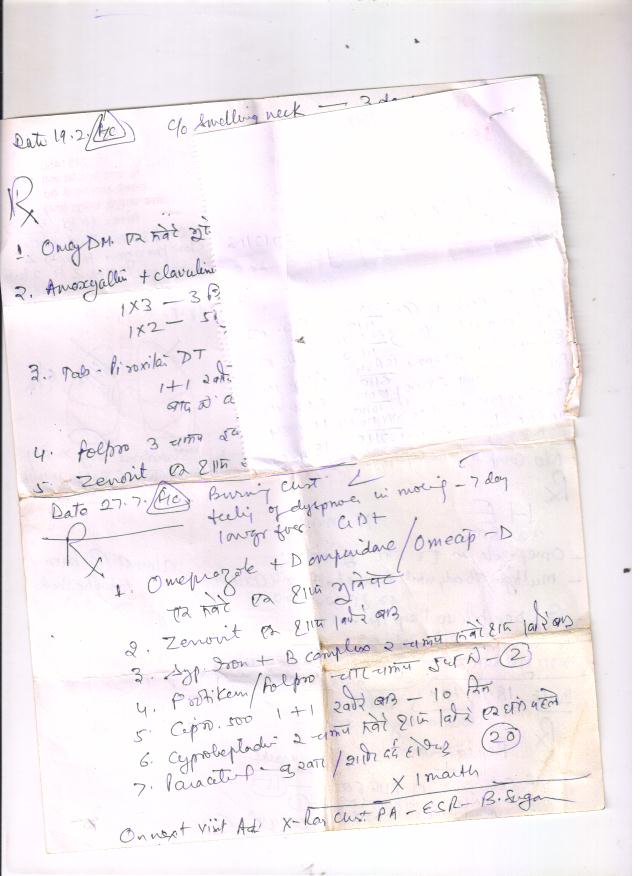 Date 19.2. c/o Swelling neck — 3 da
Rx
1. Omez DM. एक सवेरे भूखे
2. Amoxycillin + clavulin
1x3 — 3
1x2 — 5
3. Tab. Piroxikam DT
1+1 खाने
बाद
4. Folpro 3 चम्मच
5. Zenovit एक शाम
Date 27.7. Burning Chest
feeling of dyspnoea in morning – 7 day
lowgr fever. GDT
Rx
1. Omeprazole + Domperidone / Omecap-D
एक सवेरे एक शाम भूखे पेट
2. Zenovit एक शाम खाने बाद
3. Syp Iron + B complex 2 चम्मच सवेरे शाम खाने बाद
4. Protikem/Folpro चार चम्मच दूध में – 2
5. Cipro. 500 1+1 खाने बाद – 10 दिन
6. Cyproheptadin 2 चम्मच सवेरे शाम खाने एक घंटा पहले
7. Paracetamol बुखार / दर्द हो 20
X 1 month
On next visit Ad X-Ray Chest PA – ESR – B. Sugar